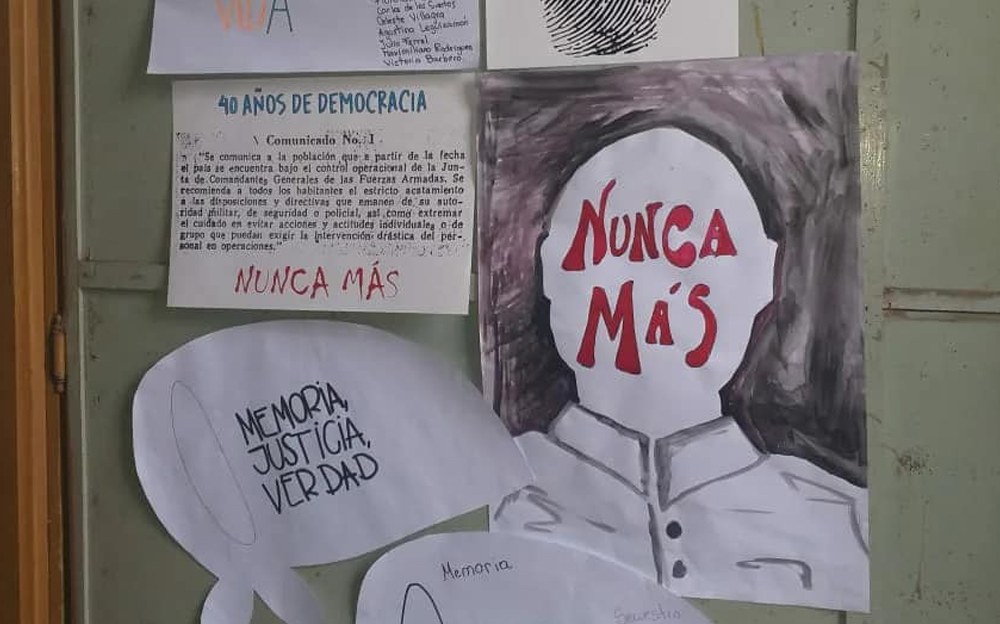 VIDA
Carla de los Santos
Celeste Villagra
Agustina Leguizamón
Julio Ferrel
Maximiliano Rodriguez
Victoria Barbero
40 AÑOS DE DEMOCRACIA
Comunicado No. 1
"Se comunica a la población que a partir de la fecha
el país se encuentra bajo el control operacional de la Jun-
ta de Comandantes Generales de las Fuerzas Armadas. Se
recomienda a todos los habitantes el estricto acatamiento
a las disposiciones y directivas que emanen de su auto-
ridad militar, de seguridad o policial, así como extremar
el cuidado en evitar acciones y actitudes individuales o de
grupo que puedan exigir la intervención drástica del per-
sonal en operaciones."
NUNCA MÁS
NUNCA
MÁS
MEMORIA,
JUSTICIA,
VERDAD
Memoria
Secuestro